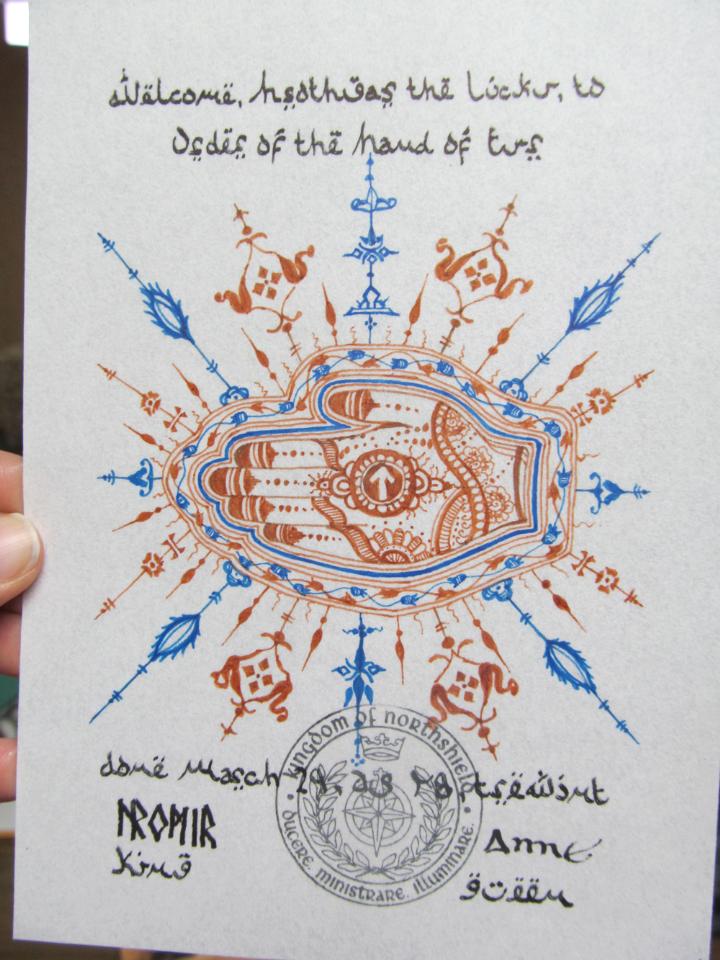 Welcome, Hrothgar the Lucky, to
Order of the Hand of Tyr
Kingdom of Northshield
done March 29, as 48, treewint
NROMIR Anne
King Queen
Ducere. Ministrare. Illuminare.